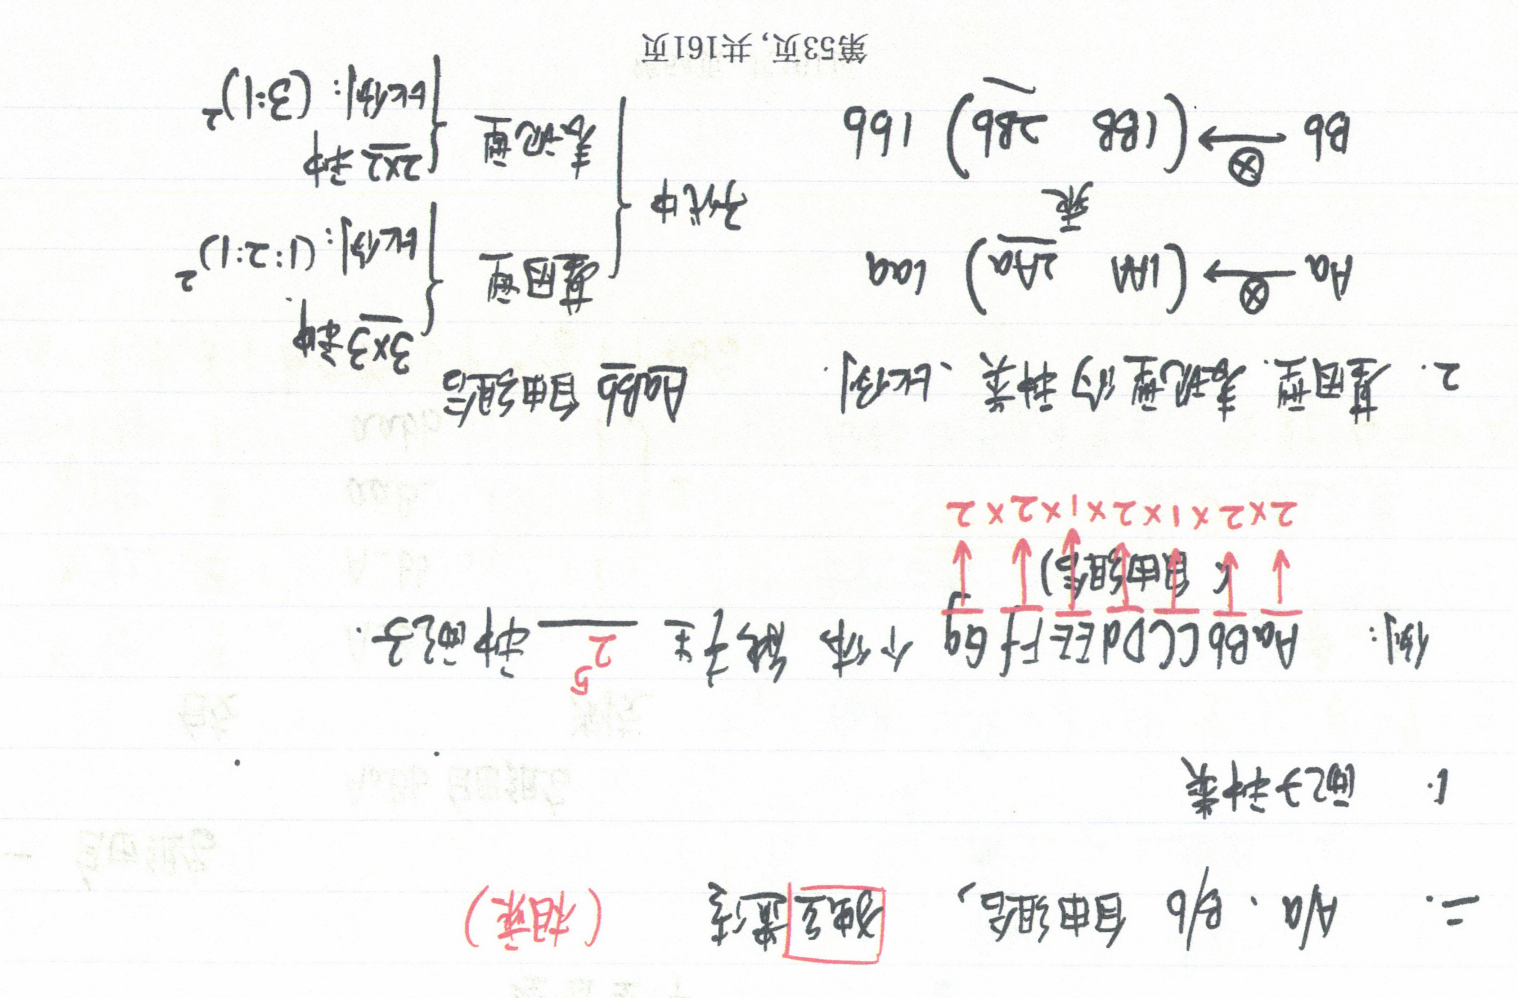 二. A/a、B/b 自由组合, 独立遗传 (相乘)
1. 配子种类
例: AaBbCCDdEEFfGg 个体 能产生 2⁵ 种配子.
(自由组合)
2×2×1×2×1×2×2
2. 基因型. 表现型的种类、比例.
AaBb 自由组合
Aa ⊗→ (1AA 2Aa) 1aa
乘
Bb ⊗→ (1BB 2Bb) 1bb
子代中
基因型
3×3种
比例: (1:2:1)²
表现型
2×2种
比例: (3:1)²
第53页, 共161页